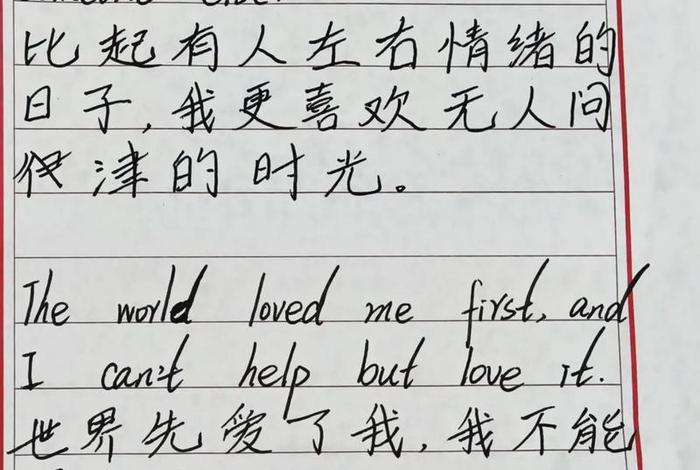 比起有人左右情绪的
日子,我更喜欢无人问
津的时光。
The world loved me first, and
I can't help but love it.
世界先爱了我,我不能